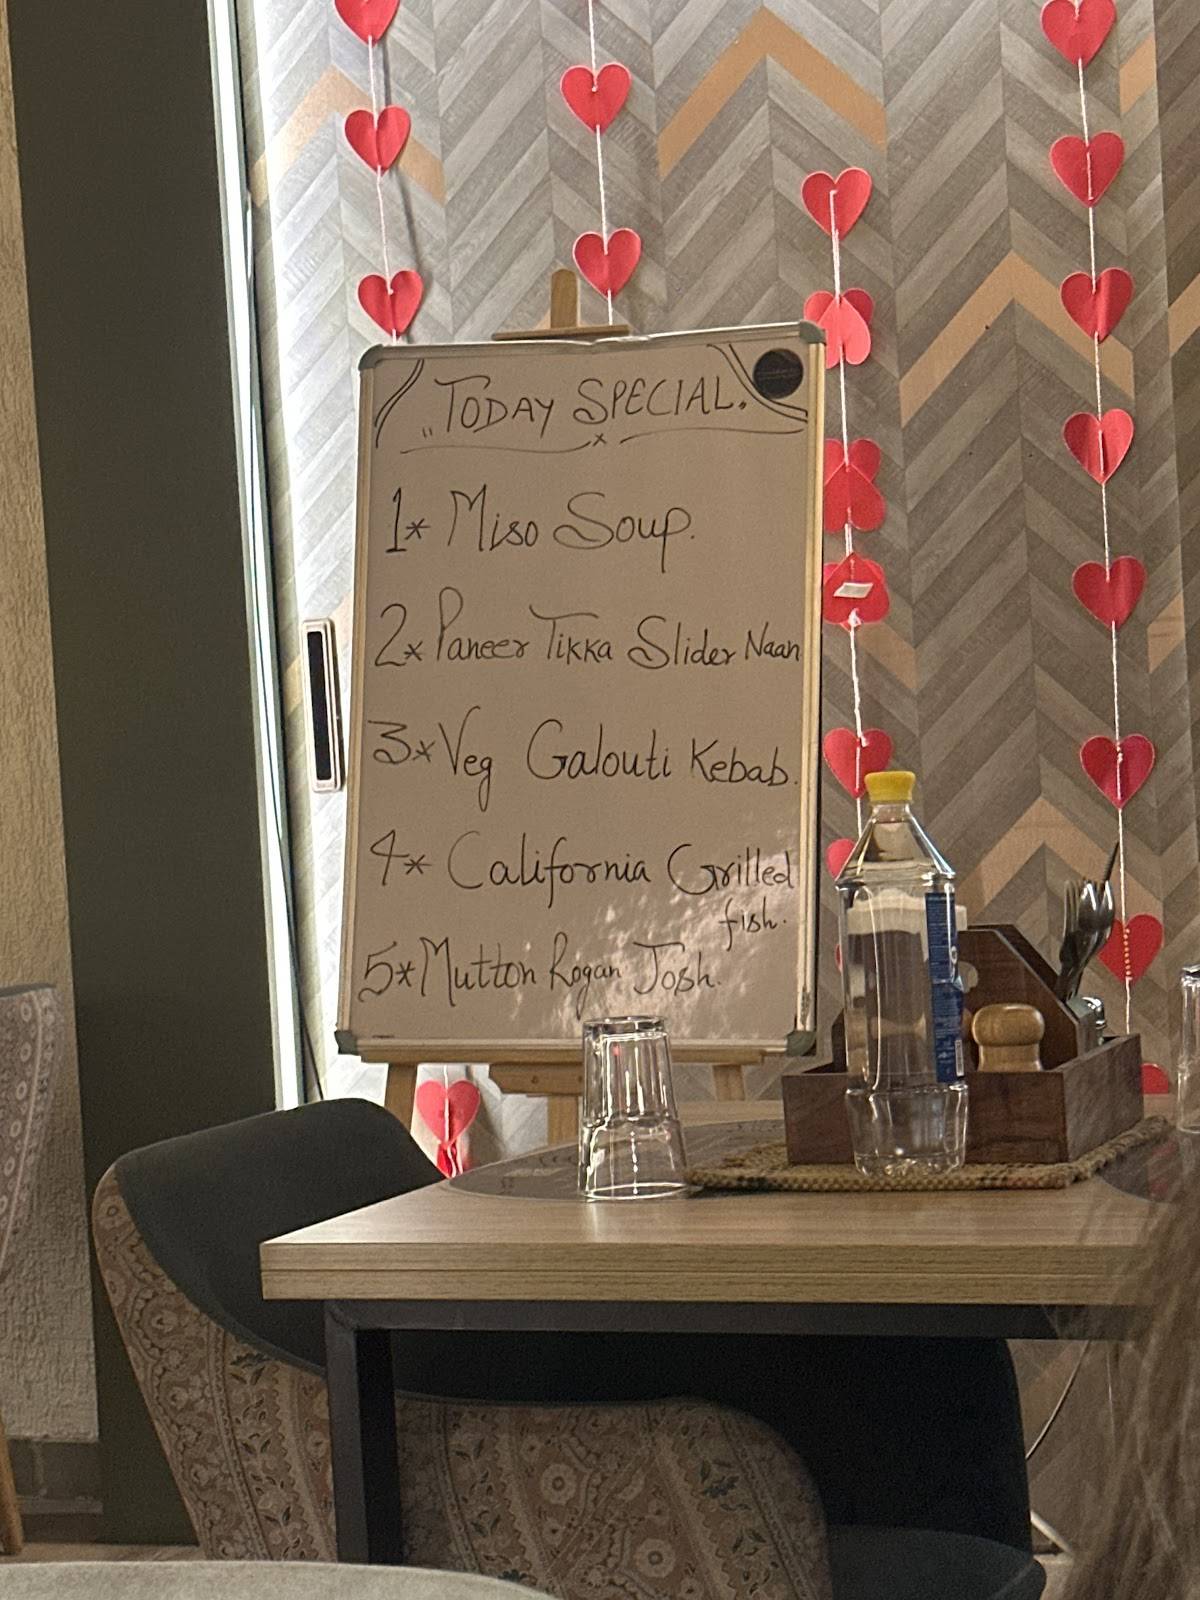 „TODAY SPECIAL.
1* Miso Soup.
2* Paneer Tikka Slider Naan
3* Veg Galouti Kebab.
4* California Grilled
fish.
5* Mutton Rogan Josh.